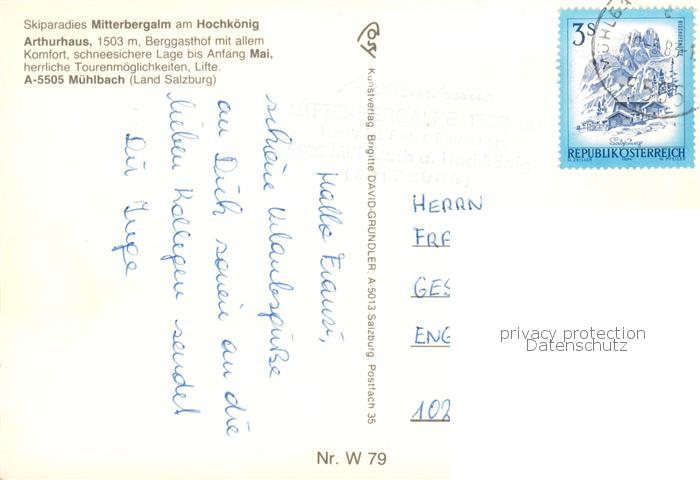 Skiparadies Mitterbergalm am Hochkönig
Arthurhaus, 1503 m, Berggasthof mit allem
Komfort, schneesichere Lage bis Anfang Mai,
herrliche Tourenmöglichkeiten, Lifte.
A-5505 Mühlbach (Land Salzburg)
Hallo Franzi,
schöne Urlaubsgrüße
an Dich sowie an die
lieben Kollegen sendet
Dir Inge
Kunstverlag Brigitte DAVID-GRÜNDLER, A-5013 Salzburg, Postfach 35
Arthurhaus
MITTERBERGALPE 1502 m
5505 Mühlbach a. Hochkönig
(SALZBURG)
3 S
Salzburg
REPUBLIK ÖSTERREICH
HERRN
FRA
GES
ENG
102
privacy protection
Datenschutz
Nr. W 79